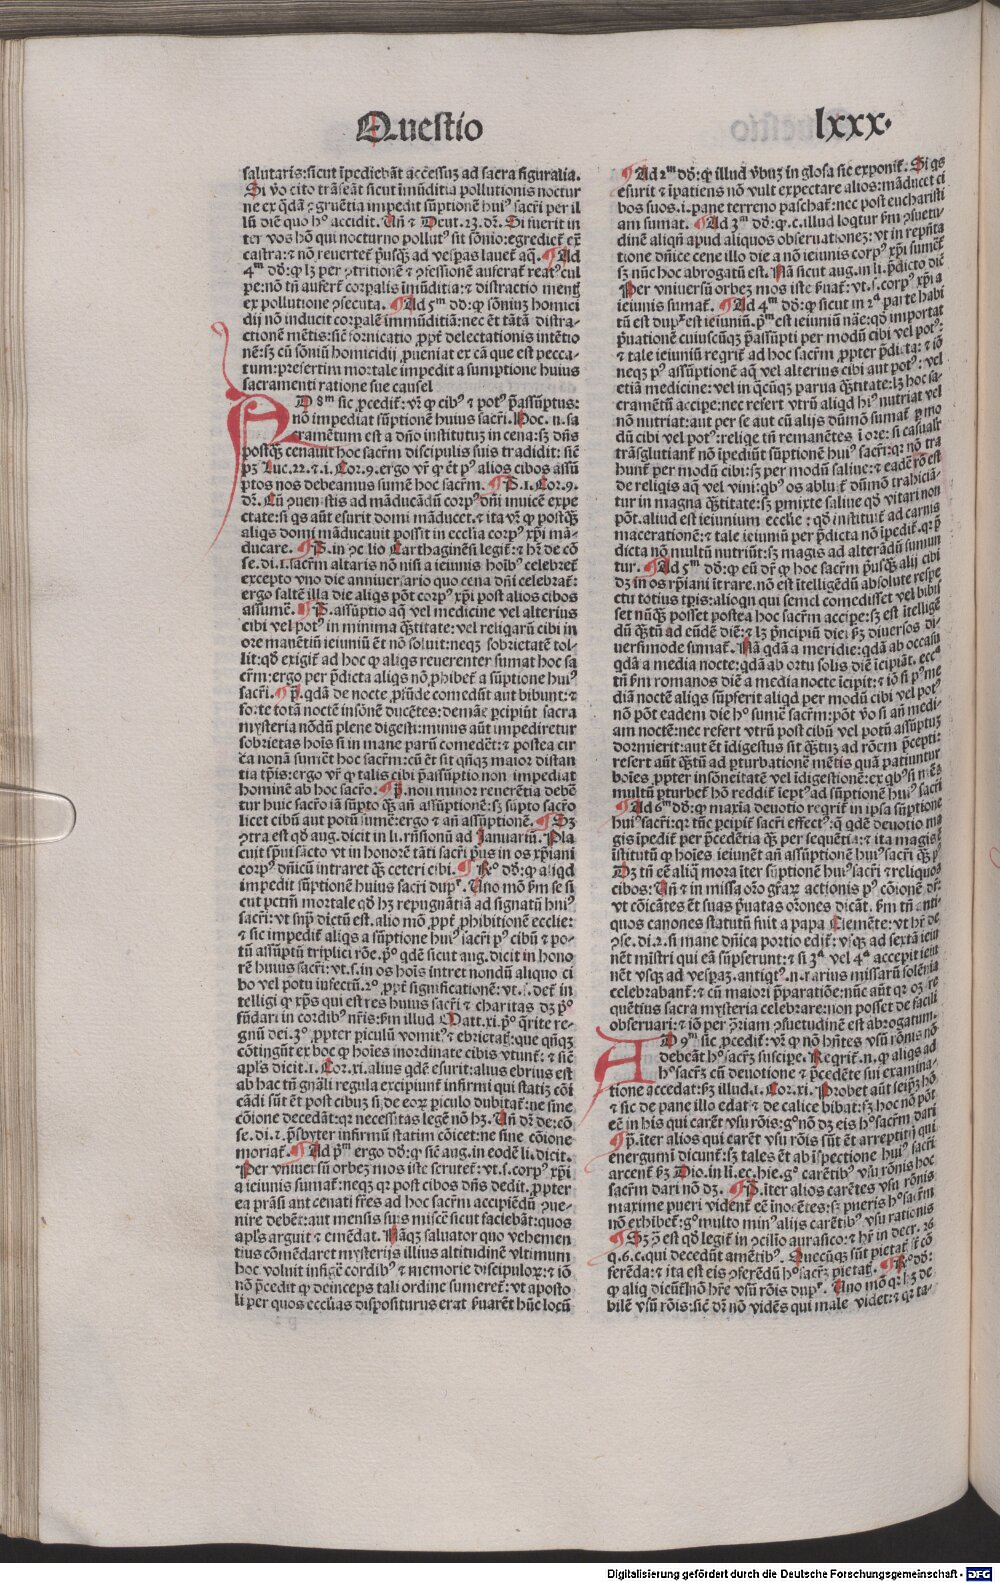 Questio lxxx.
salutaris: sicut īpediebāt accessuȝ ad sacra figuralia.
Si ṽo cito trāseāt sicut īmūditia pollutionis noctur
ne ex q̄dā ꝯgruētia impedit sūptionem huiꝰ sacr̄i per il
lū diē quo hͦ accidit. Uñ ⁊ Deut. 23. dr̄. Si fuerit in
ter vos hō qui nocturno pollutꝰ sit sōnio: egrediet̄ ex̄
castra: ⁊ nō reuertet̄ pͥusqȝ ad vesꝑas lauet̄ aq̄. ¶ Ad
4ᵐ dō: ꝙ lȝ per ꝯtritionē ⁊ ꝯfessionē auferat̄ reatꝰ cul
pe: nō tñ aufert̄ corꝑalis īmūditia: ⁊ distractio mentꝭ
ex pollutione ꝯsecuta. ¶ Ad 5ᵐ dō: ꝙ sōniuȝ homici
dij nō inducit corꝑalē īmmūditiā: nec ēt tātā distra-
ctionē mētis: siē fornicatio ꝓpt̄ delectationis intētio
nē: sȝ cū sōniū homicidij ꝓueniat ex cā que est pecca-
tum: presertim mortale impedit a sumptione huius
sacramenti ratione sue cause.
AD 8ᵐ sic ꝓcedit̄: vr̄ ꝙ cibꝰ ⁊ potꝰ p̄assūptus:
nō impediat sūptionē huius sacr̄i. Hoc. n. sa
cramētum est a dño institutuȝ in cena: sȝ dñs
postqȝ cenauit hoc sacr̄m discipulis suis tradidit: siē
pȝ Luc. 22. ⁊ .i. Cor. 9. ergo vr̄ ꝙ ēt pꝰ alios cibos assū
ptos nos debeamus sumē hoc sacr̄m. ¶ P. 1. Cor. 9.
dr̄. Cū ꝯuenistis ad māducādū corpꝰ dñi inuicē expe
ctate: si qs aūt esurit domi māducet. ⁊ ita vr̄ ꝙ postqȝ
aliqs domi māducauit possit in ecclia corpꝰ xp̄i mā-
ducare. ¶ P. in ꝯcilio Carthagineñ legit̄: ⁊ hr̄ de cō
se. di. 1. sacr̄m altaris nō nisi a ieiunis hoībꝰ celebret̄
excepto vno die anniuersario quo cena dñi celebrat̄:
ergo saltē illa die aliqs pōt corpꝰ xp̄i post alios cibos
assumē. ¶ P. assūptio aq̄ vel medicine vel alterius
cibi vel potꝰ in minima qȝtitate: vel reliqarū cibi in
ore manētiū ieiuniū ēt nō soluit: neqȝ sobrietatē tol-
lit: qd̄ exigit̄ ad hoc ꝙ aliqs reuerenter sumat hoc sa
cr̄m: ergo per p̄dicta aliqs nō ꝓhibet̄ a sūptione huiꝰ
sacr̄i. ¶ P. qdā de nocte ꝓfūde comedūt aut bibunt: ⁊
forte totā noctē insōnē ducētes: demāe ꝑcipiūt sacra
mysteria nōdū plene digesti: minus aūt impediretur
sobrietas hoīs si in mane parū comedēt: ⁊ postea cir
ca nonā sumēt hoc sacr̄m: cū ēt sit qñqȝ maior distan
tia tp̄is: ergo vr̄ ꝙ talis cibi p̄assūptio non impediat
hominē ab hoc sacr̄o. ¶ P. non minor reuerētia debē
tur huic sacr̄o iā sūpto qȝ añ assūptionē: sȝ sūpto sacr̄o
licet cibū aut potū sumē: ergo ⁊ añ assūptionē. ¶ Sȝ
ꝯtra est qd̄ aug. dicit in li. rñsionū ad Januariū. Pla
cuit sp̄ui sācto vt in honorē tāti sacr̄i pͥus in os xp̄iani
corpꝰ dñicū intraret qȝ ceteri cibi. ¶ Rͦ dō: ꝙ aliqd
impedit sūptionē huius sacr̄i dupr̄. Uno mō ẜm se si
cut pctm̄ mortale qd̄ hȝ repugnātiā ad signatū huiꝰ
sacr̄i: vt suꝑ dictū est. alio mō ꝓpt̄ ꝓhibitionē ecclie:
⁊ sic impedit̄ aliqs a sūptione huiꝰ sacr̄i pꝰ cibū ⁊ po-
tū assūptū triplici rōe. pͦ qd̄ē sicut aug. dicit in hono
rē huius sacr̄i: vt. s. in os hoīs intret nondū aliquo ci
bo vel potu infectū. 2ͦ ꝓpt̄ significationē: vt. s. det̄ in
telligi ꝙ xp̄s qui est res huius sacr̄i ⁊ charitas dȝ pͦ
fūdari in cordibꝰ nr̄is: ẜm illud Matt. xi. pͦ q̄rite re-
gnū dei. 3ͦ ꝓpter ꝑiculū vomitꝰ ⁊ ebrietat̄: que qñqȝ
cōtingūt ex hoc ꝙ hoīes inordinate cibis vtunt̄: ⁊ siē
apl̄s dicit. 1. Cor. xi. alius qdē esurit: alius ebrius est
ab hac tñ gn̄ali regula excipiunt̄ infirmi qui statiȝ cōi
cādi sūt ēt post cibuȝ si de eoꝝ ꝑiculo dubitat̄: ne sine
cōione decedāt: qꝛ necessitas legē nō hȝ. Uñ dr̄ de: cō
se. di. ⁊ p̄sbyter infirmū statim cōicet: ne sine cōione
moriat̄. ¶ Ad pͫ ergo dō: ꝙ siē aug. in eodē li. dicit.
Per vniuersū orbeȝ mos iste seruatet̄: vt. s. corpꝰ xp̄i
a ieiunis sumat̄: neqȝ qꝛ post cibos dñs dedit. ꝓpter
ea prāsi aut cenati fr̄es ad hoc sacr̄m accipiēdū ꝯue-
nire debēt: aut mensis suis miscē sicut faciebāt: quos
apl̄s arguit ⁊ emēdat. Nāqȝ saluator quo vehemen
tius cōmēdaret mysterijs illius altitudinē vltimum
hoc voluit infigē cordibꝰ ⁊ memorie discipuloꝝ: ⁊ iō
nō p̄cedit ꝙ deinceps tali ordine sumeret̄: vt aposto
li per quos eccl̄ias dispositurus erat ẜuarēt hūc locū
¶ Ad 2ᵐ dō: ꝙ illud v̄buȝ in glosa sic exponit̄. Si qs
esurit ⁊ īpatiens nō vult expectare alios: māducet ci
bos suos. i. pane terreno pascat̄: nec post eucharisti
am sumat. ¶ Ad 3ᵐ dō: ꝙ. c. illud loqtur ẜm ꝯsuetu-
dinē aliqñ apud aliquos obseruationeȝ: vt in rep̄n̄ta
tione dñice cene illo die a nō ieiunis corpꝰ xp̄i sumēt̄
sȝ nūc hoc abrogatū est. Nā sicut aug. in li. p̄dicto dic̄
Per vniuersū orbeȝ mos iste ẜuat̄: vt. s. corpꝰ xp̄i a
ieiunis sumat̄. ¶ Ad 4ᵐ dō: ꝙ sicut in 2ª parte habi
tū est dupꝝ est ieiuniū. pͫ est ieiuniū nāe: qd̄ importat
p̄uationē cuiuscūqȝ p̄assūpti per modū cibi vel potꝰ:
⁊ tale ieiuniū reqrit̄ ad hoc sacr̄m ꝓpter p̄dicta: ⁊ iō
neqȝ pꝰ assūptionē aq̄ vel alterius cibi aut potꝰ: vel
etiā medicine: vel in q̄cūqȝ parua qȝtitate: lȝ hoc sa-
cramētū accipe: nec refert vtrū aliqd hꝰ nutriat vel
nō nutriat: aut per se aut cū alijs dūmō sumat̄ ꝑ mo
dū cibi vel potꝰ: reliqe tñ remanētes ī ore: si casualr̄
trāsglutiant̄ nō īpediūt sūptionē huiꝰ sacr̄i: qꝛ nō tra
hunt̄ per modū cibi: sȝ per modū saliue: ⁊ eadē rō est
de reliqs aq̄ vel vini: qbꝰ os abluit̄ dūmō trahicia-
tur in magna qȝtitate: sȝ ꝑmixte saliue qd̄ vitari non
pōt. aliud est ieiunium ecclie: qd̄ instituit̄ ad carnis
macerationē: ⁊ tale ieiuniū per p̄dicta nō īpedit̄. qꝛ p̄
dicta nō multū nutriūt: sȝ magis ad alterādū sumun
tur. ¶ Ad 5ᵐ dō: ꝙ eū dr̄ ꝙ hoc sacr̄m p̄usqȝ alij cibi
dȝ in os xp̄iani īt̄rare. nō est ītelligēdū absolute respe
ctu totius tp̄is: alioqn qui semel comedisset vel bibis
set nūqȝ posset postea hoc sacr̄m accipe: sȝ est ītellige
dū qȝtū ad eūdē diē: ⁊ lȝ pͥncipiū diei ẜȝ diuersos di-
uersimode sumat̄. Nā qdā a meridie: qdā ab occasu
qdā a media nocte: qdā ab ortu solis diē īcipiāt. ecca
tñ ẜm romanos diē a media nocte īcipit: ⁊ iō si pꝰ me
diā noctē aliqs sūpserit aliqd per modū cibi vel potꝰ
nō pōt eadem die hͦ sumē sacr̄m: pōt ṽo si añ medi-
am noctē: nec refert vtrū post cibū vel potū assūptuȝ
dormierit: aut ēt īdigestus sit qȝtuȝ ad rōem p̄cepti:
refert aūt qȝtū ad ꝑturbationē mētis quā patiuntur
hoīes ꝓpter insōneitatē vel īdigestionē: ex qbꝰ si mēs
multū ꝑturbet̄ hō reddit̄ īeptꝰ ad sūptionē huiꝰ sacr̄i
¶ Ad 6ᵐ dō: ꝙ maxia deuotio reqrit̄ in ipsa sūptione
huiꝰ sacr̄i: qꝛ tūc ꝑcipit̄ sacr̄i effectꝰ: q̄ qdē deuotio ma
gis īpedit̄ per p̄cedētia qȝ per sequētia: ⁊ ita magis ē
īstitutū ꝙ hoīes ieiunēt añ assūptionē huiꝰ sacr̄i qȝ pꝰ
Dȝ tñ eē aliq̄ mora īter sūptionē huiꝰ sacr̄i ⁊ reliquos
cibos: Uñ ⁊ in missa or̄o gr̄aꝝ actionis pꝰ cōionē dr̄:
vt cōicātes ēt suas p̄uatas or̄ones dicāt. ẜm tñ anti-
quos canones statutū fuit a papa Clemēte: vt hr̄ de
ꝯse. di. 2. si mane dñica portio edit̄: vsqȝ ad sextā ieiu
nēt mīstri qui eā sūpserunt: ⁊ si 3ª vel 4ª accepit ieiu
nēt vsqȝ ad vesperaȝ. antiqͭꝰ. n. rarius missarū solēnia
celebrabant̄: ⁊ cū maiori p̄paratiōe: nūc aūt qꝛ oȝ fre
quētius sacra mysteria celebrare: non posset de facili
obseruari: ⁊ iō per ꝯriam ꝯsuetudinē est abrogatum.
AD 9ᵐ sic ꝓcedit̄: vr̄ ꝙ nō hñtes vsū rōnis nō
debeāt hͦ sacr̄ȝ suscipe. Reqrit̄. n. ꝙ aliqs ad
hͦ sacr̄ȝ cū deuotione ⁊ p̄cedēte sui examina-
tione accedat: ẜȝ illud. 1. Cor. xi. Probet aūt seipȝ hō
⁊ sic de pane illo edat ⁊ de calice bibat: sȝ hoc nō pōt
eē in his qui carēt vsu rōis: gͦ nō dȝ eis hͦ sacr̄m dari
¶ P. iter alios qui carēt vsu rōis sūt ēt arreptitij qui
energumi dicunt̄: sȝ tales ēt ab īspectione huiꝰ sacr̄i
arcent̄ ẜȝ Dio. in li. ec. hie. gͦ carētibꝰ vsu rōnis hoc
sacr̄m dari nō dȝ. ¶ P. iter alios carētes vsu rōnis
maxime pueri vident̄ eē īnocētes: sȝ pueris hͦ sacr̄m
nō exhibet̄: gͦ multo minꝰ alijs carētibꝰ vsu rationis
¶ Sȝ ꝯ est qd̄ legit̄ in ꝯcilio aurasico: ⁊ hr̄ in decr. 26
q. 6. c. qui decedūt amētibꝰ. Quecūqȝ sūt pietat̄ sūt cō
ferēda: ⁊ ita est eis ꝯferēdū hͦ sacr̄ȝ pietat̄. ¶ Rͦ dō:
ꝙ aliq dicūt̄ nō hr̄e vsū rōis dupr̄. Uno mō qꝛ hȝ de
bilē vsū rōis: siē dr̄ nō vidēs qui male videt: ⁊ qꝛ ta-
Digitalisierung gefördert durch die Deutsche Forschungsgemeinschaft - DFG